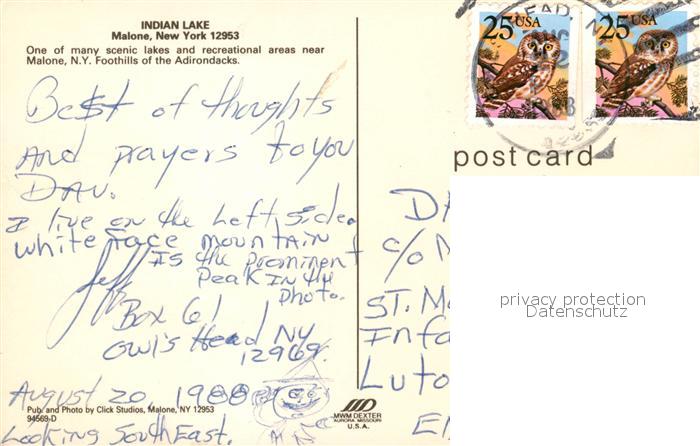 INDIAN LAKE
Malone, New York 12953
One of many scenic lakes and recreational areas near
Malone, N.Y. Foothills of the Adirondacks.
Best of thoughts
And prayers to you
DAV.
I live on the Left side.
white face mountain
Is the prominent
Peak In the
photo.
Jeff
Box 61
Owl's Head NY
12969.
August 20, 1988
Looking SouthEast.
Pub. and Photo by Click Studios, Malone, NY 12953
94569-D
MWM DEXTER
AURORA MISSOURI
U.S.A.
25 USA
25 USA
HEAD, N
post card
c/o
ST. M
Info
Luto
privacy protection
Datenschutz